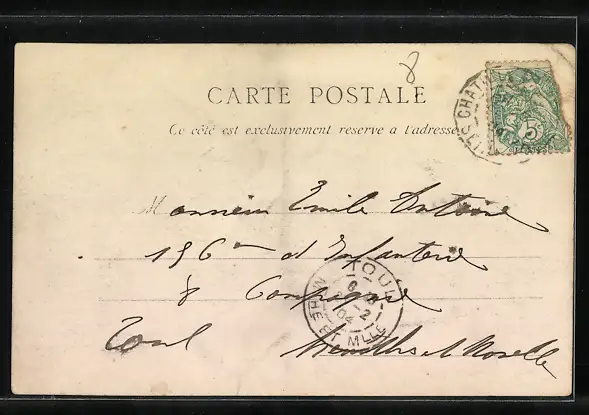 8
CARTE POSTALE
Ce côté est exclusivement réservé à l'adresse
Monsieur Emile Antoine
156me d'Infanterie
8 Compagnie
Toul Meurthe et Moselle
5
TOUL
MTHE ET MLLE
04